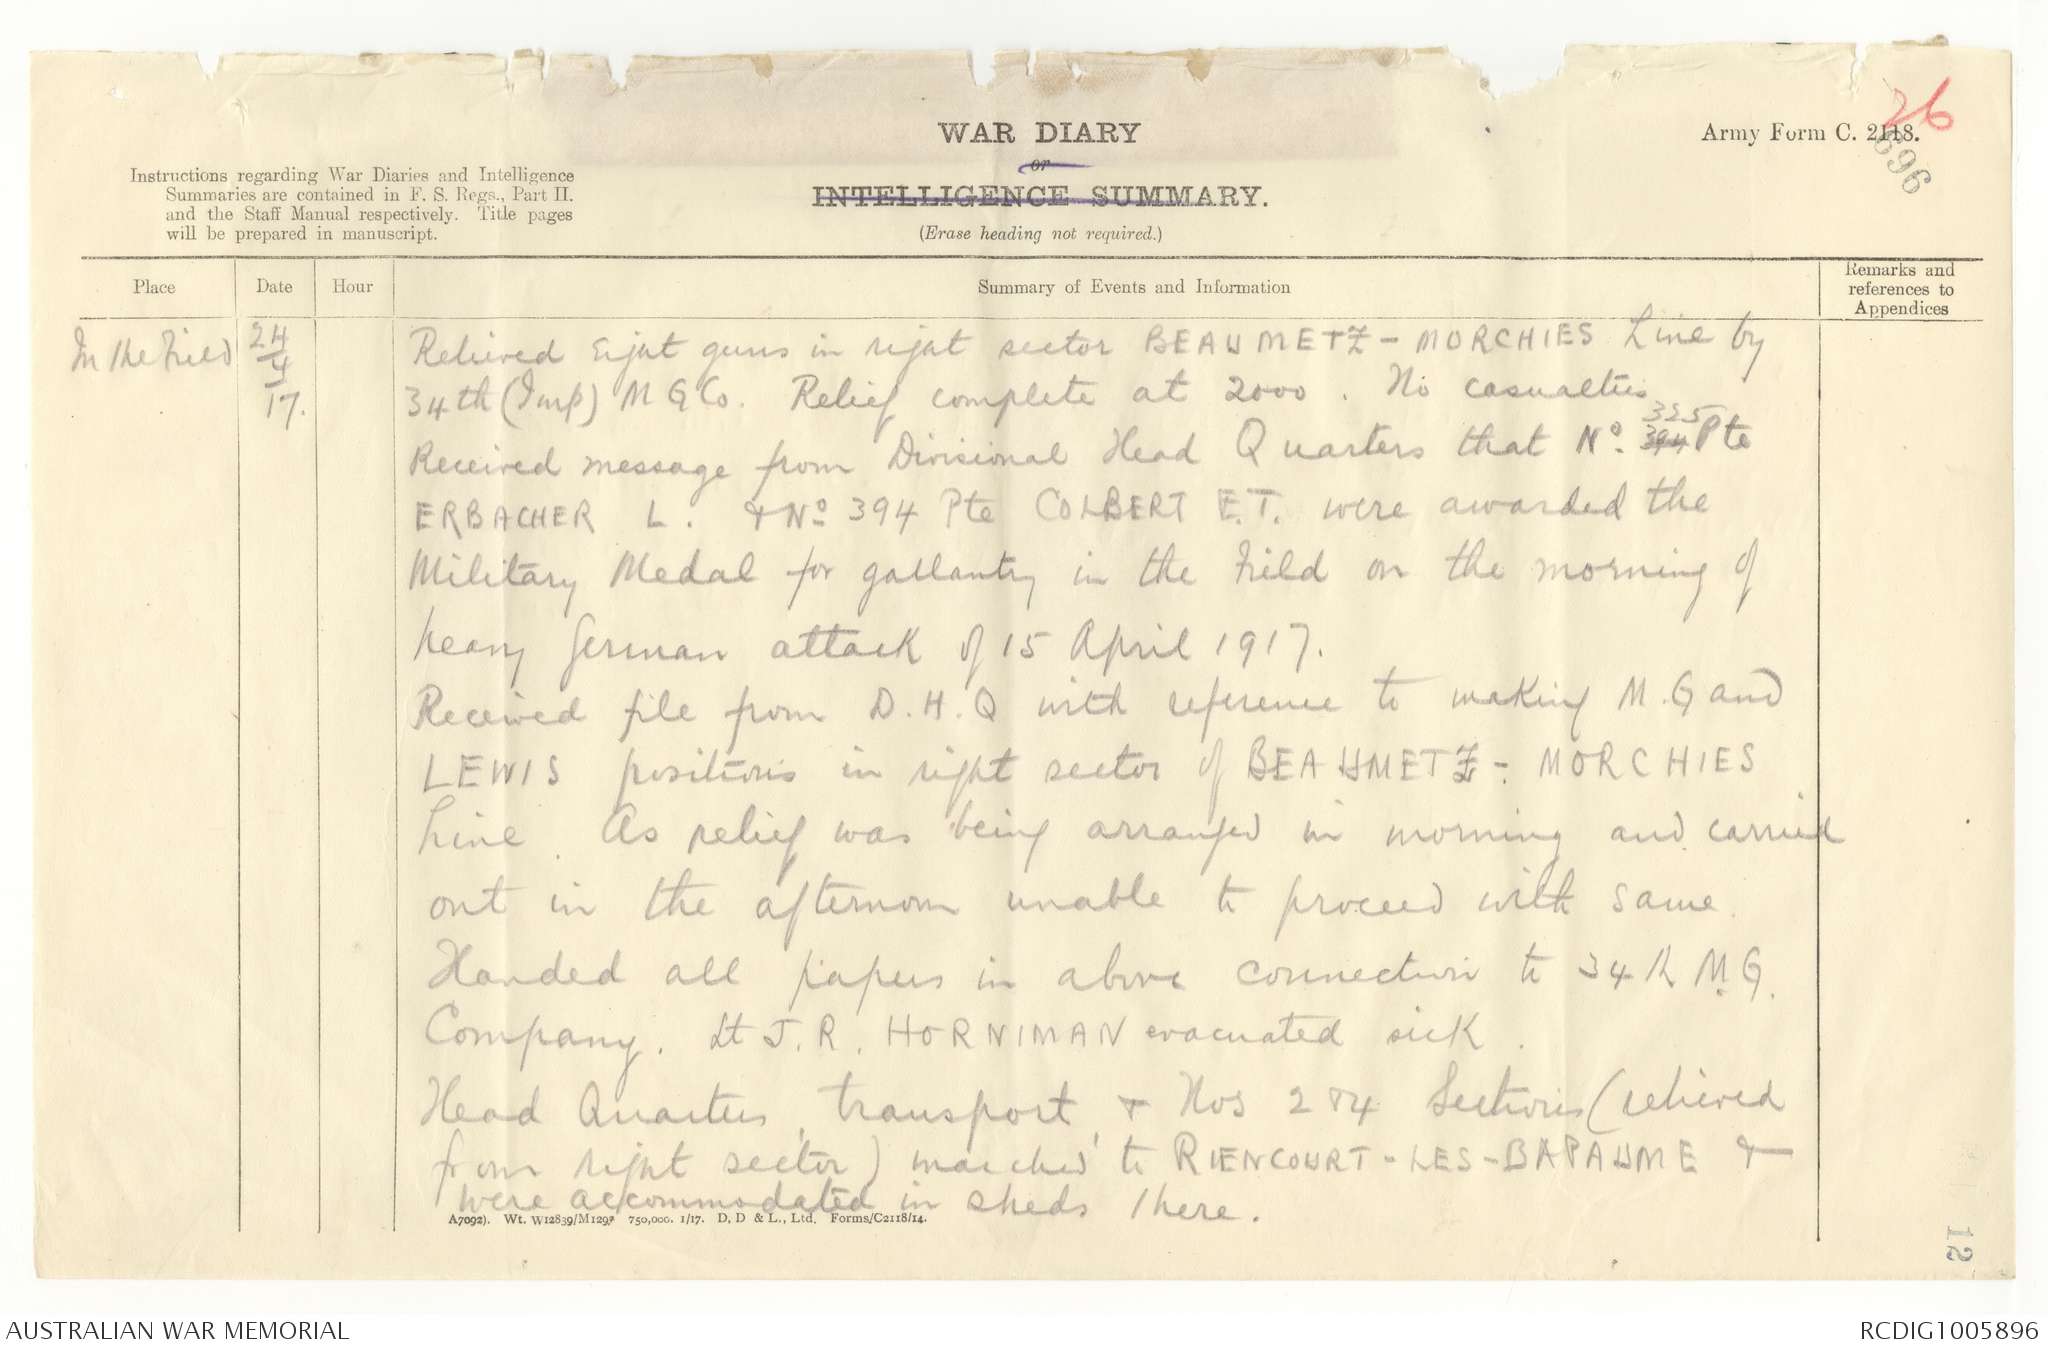 26
WAR DIARY
Army Form C. 2118.
696
or
INTELLIGENCE SUMMARY.
(Erase heading not required.)
Instructions regarding War Diaries and Intelligence
Summaries are contained in F. S. Regs., Part II.
and the Staff Manual respectively. Title pages
will be prepared in manuscript.
Place
Date
Hour
Summary of Events and Information
Remarks and
references to
Appendices
In the Field
24
4
17.
Relieved eight guns in right sector BEAUMETZ - MORCHIES Line by
34th (Imp) M G Co. Relief complete at 2000. No casualties
Received message from Divisional Head Quarters that No. 394 325 Pte
ERBACHER L. & No 394 Pte COLBERT E.T. were awarded the
Military Medal for gallantry in the Field on the morning of
heavy German attack of 15 April 1917.
Received file from D.H.Q with reference to making M.G and
LEWIS positions in right sector of BEAUMETZ - MORCHIES
Line. As relief was being arranged in morning and carried
out in the afternoon unable to proceed with same.
Handed all papers in above connection to 34th M.G.
Company. Lt J.R. HORNIMAN evacuated sick.
Head Quarters, transport, & Nos 2 & 4 Sections (relieved
from right sector) marched to RIENCOURT-LES-BAPAUME &
were accommodated in sheds there.
A7092). Wt. W12839/M1297 750,000. 1/17. D. D & L., Ltd. Forms/C2118/14.
12
AUSTRALIAN WAR MEMORIAL
RCDIG1005896